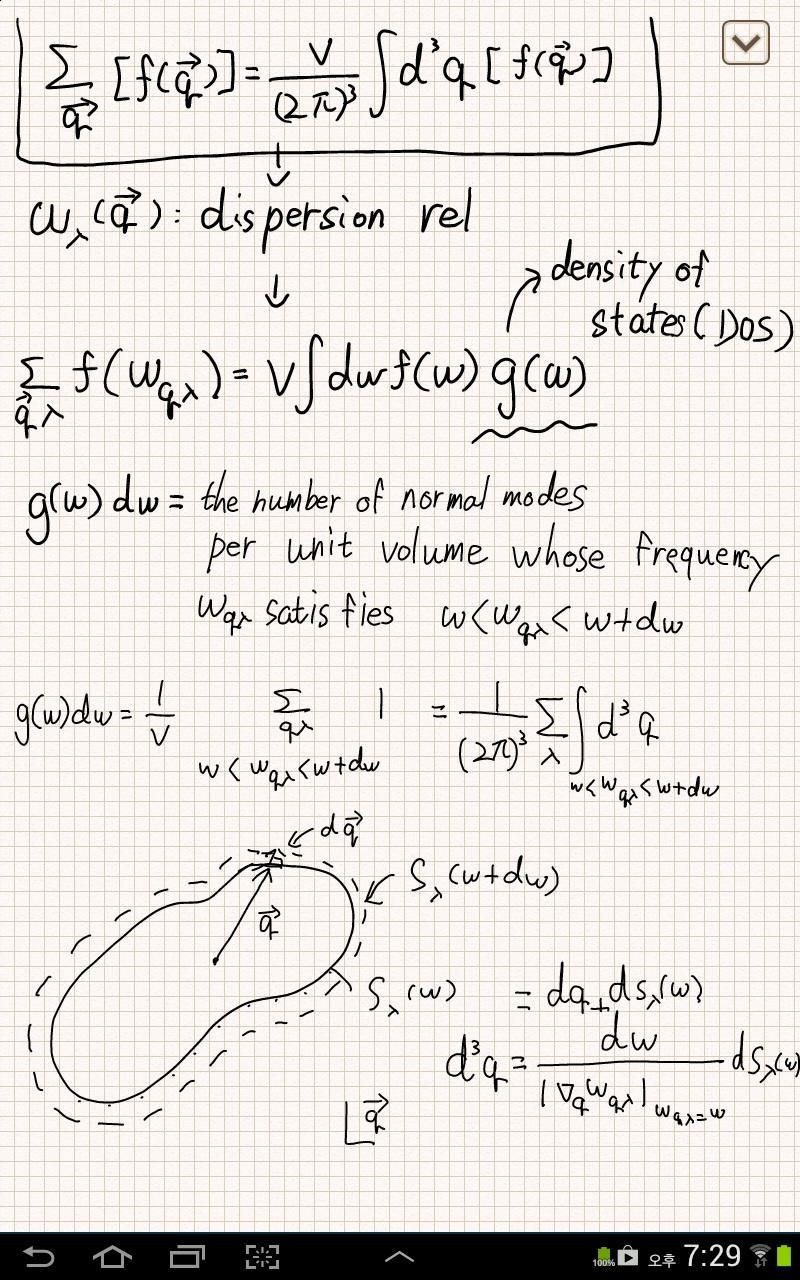 ∑_q⃗ [f(q⃗)] = V/(2π)³ ∫d³q [f(q⃗)]
↓
ω_λ(q⃗) : dispersion rel
↓
density of
states (DOS)
∑_q⃗λ f(ω_qλ) = V∫dωf(ω) g(ω)
g(ω)dω = the number of normal modes
per unit volume whose frequency
ω_qλ satisfies ω<ω_qλ<ω+dω
g(ω)dω = 1/V ∑_qλ 1 = 1/(2π)³ ∑_λ ∫ d³q
ω<ω_qλ<ω+dω ω<ω_qλ<ω+dω
dq⃗
S_λ(ω+dω)
q⃗
S_λ(ω)
= dq⊥ds_λ(ω)
d³q = dω/|∇_q ω_qλ|_ω_qλ=ω ds_λ(ω)
q⃗
100% 오후 7:29